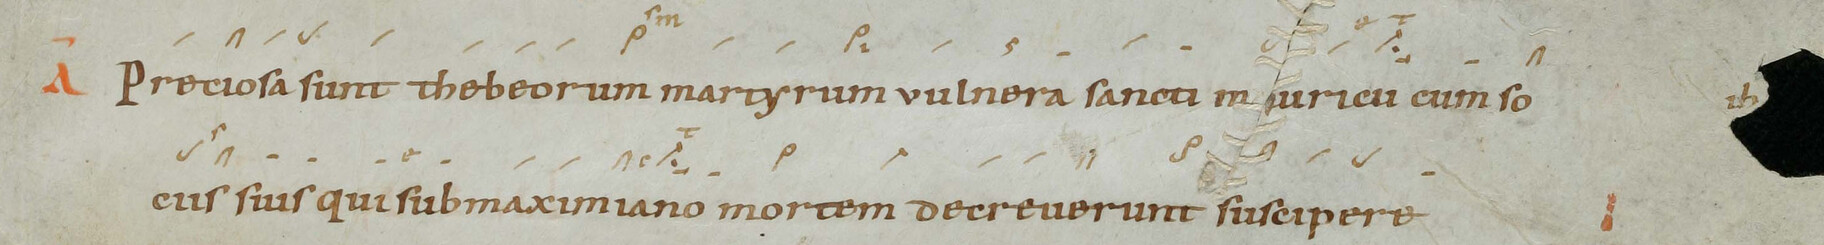 A Preciosa sunt thebeorum martyrum vulnera sancti mauricii cum so
ciis suis qui sub maximiano mortem decreverunt suscipere